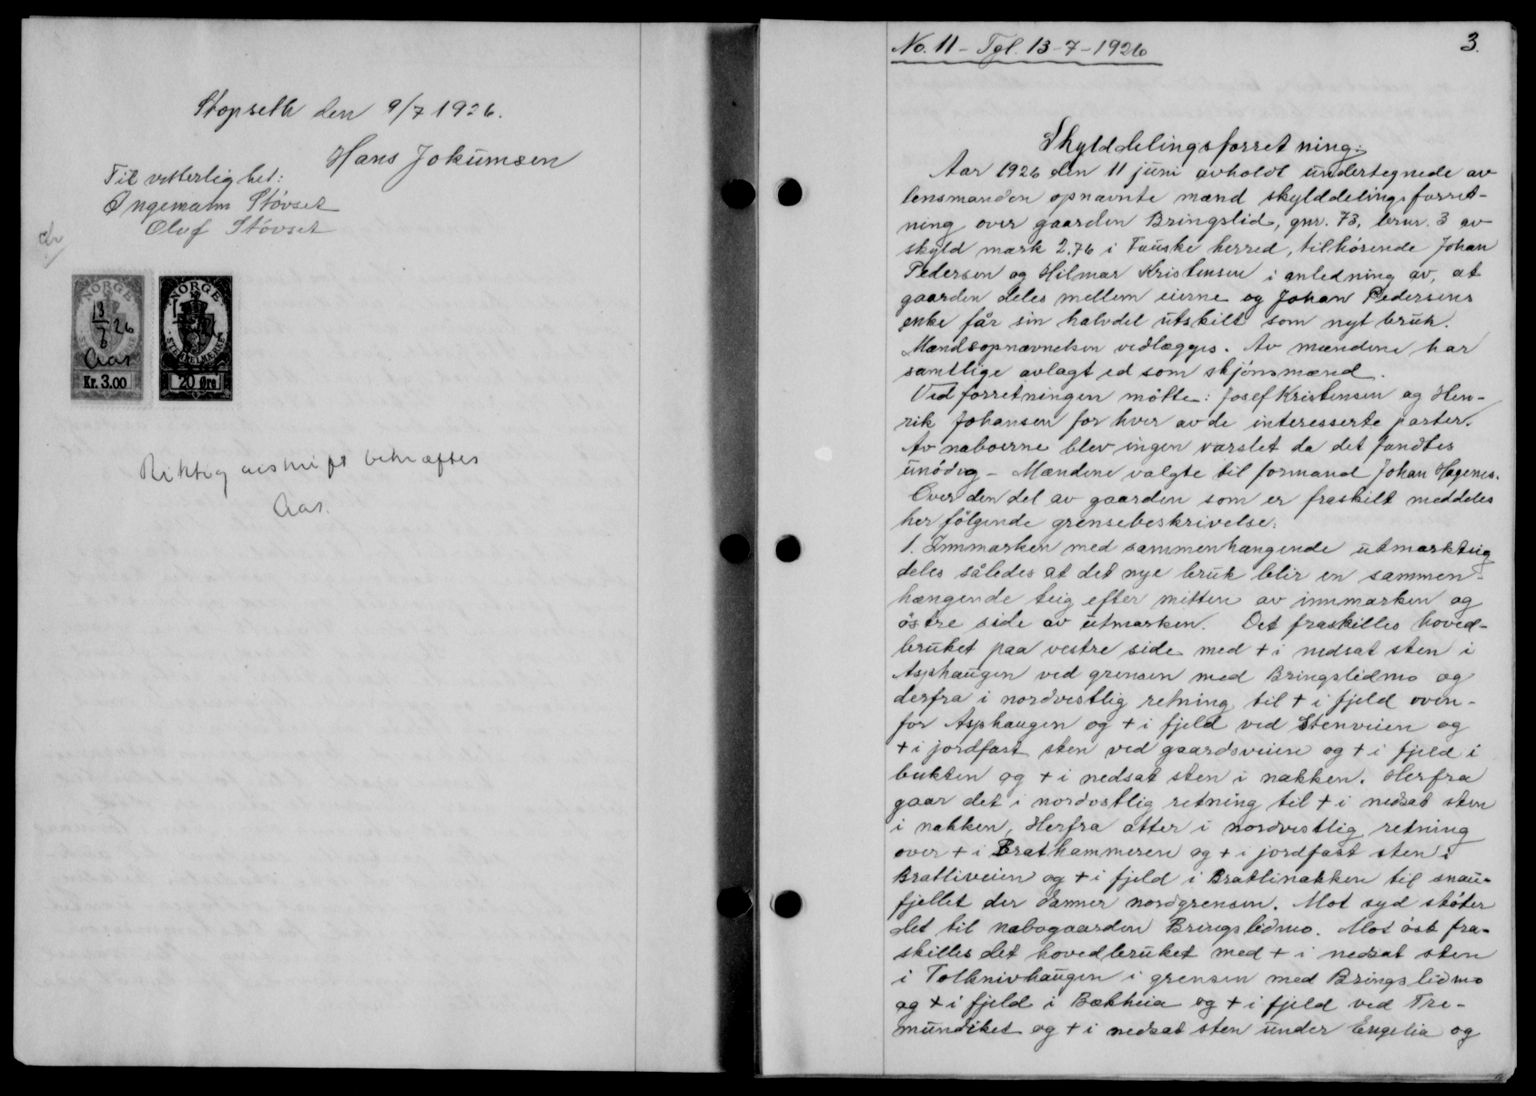 Stopseth den 9/7 1926.
Hans Jokumsen
Til vitterlighet:
Ingemann Støvset
Olof Støvset
NORGE
13/7 26
Aar
STEMPELMERKE
Kr. 3.00
NORGE
STEMPELMERKE
20 Øre
Riktig avskrift bekræftes
Aar.
No. 11 - Tgl. 13-7-1926
3.
Skylddelingsforretning.
Aar 1926 den 11 juni avholdt undertegnede av
lensmanden opnævnte mænd skylddelingsforret-
ning over gaarden Bringslid, gnr. 73, brnr. 3 av
skyld mark 2.76 i Fauske herred, tilhørende Johan
Pedersen og Hilmar Kristensen i anledning av, at
gaarden deles mellem eierne og Johan Pedersens
enke får sin halvdel utskilt som nyt bruk.
Mandsopnævnelsen vedlægges. Av mændene har
samtlige avlagt ed som skjønsmænd.
Ved forretningen møtte: Josef Kristensen og Hen-
rik Johansen for hver av de interesserte parter.
Av naboerne blev ingen varslet da det fandtes
unødig - Mændene valgte til formand Johan Hagenes.
Over den del av gaarden som er fraskilt meddeles
her følgende grensebeskrivelse:
1. Innmarken med sammenhængende utmarksteig
deles således at det nye bruk blir en sammen-
hængende teig efter mitten av innmarken og
østre side av utmarken. Det fraskilles hoved-
bruket paa vestre side med + i nedsat sten i
Asphaugen ved grensen med Bringslidmo og
derfra i nordvestlig retning til + i fjeld oven-
for Asphaugen og + i fjeld ved Stenveien og
+ i jordfast sten ved gaardsveien og + i fjeld i
bukten og + i nedsat sten i nakken. Herfra
gaar det i nordostlig retning til + i nedsat sten
i nakken, Herfra atter i nordvestlig retning
over + i Brathammeren og + i jordfast sten i
Bratliveien og + i fjeld i Bratlinakken til snau-
fjellet der danner nordgrensen. Mot syd støter
det til nabogaarden Bringslidmo. Mot øst fra-
skilles det hovedbruket med + i nedsat sten
i Tolknivhaugen i grensen med Bringslidmo
og + i fjeld i Bækheia og + i fjeld ved Tre-
mundiket og + i nedsat sten under Engelia og